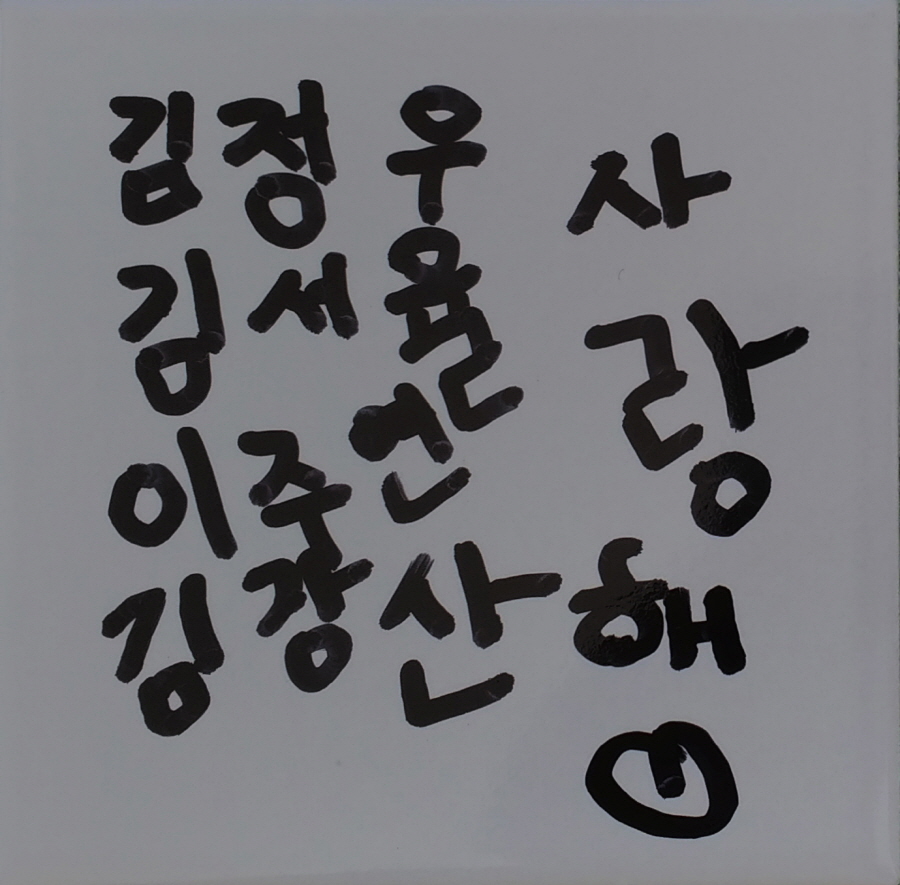 김정우
김세율
이주언
김강산
사
랑
해